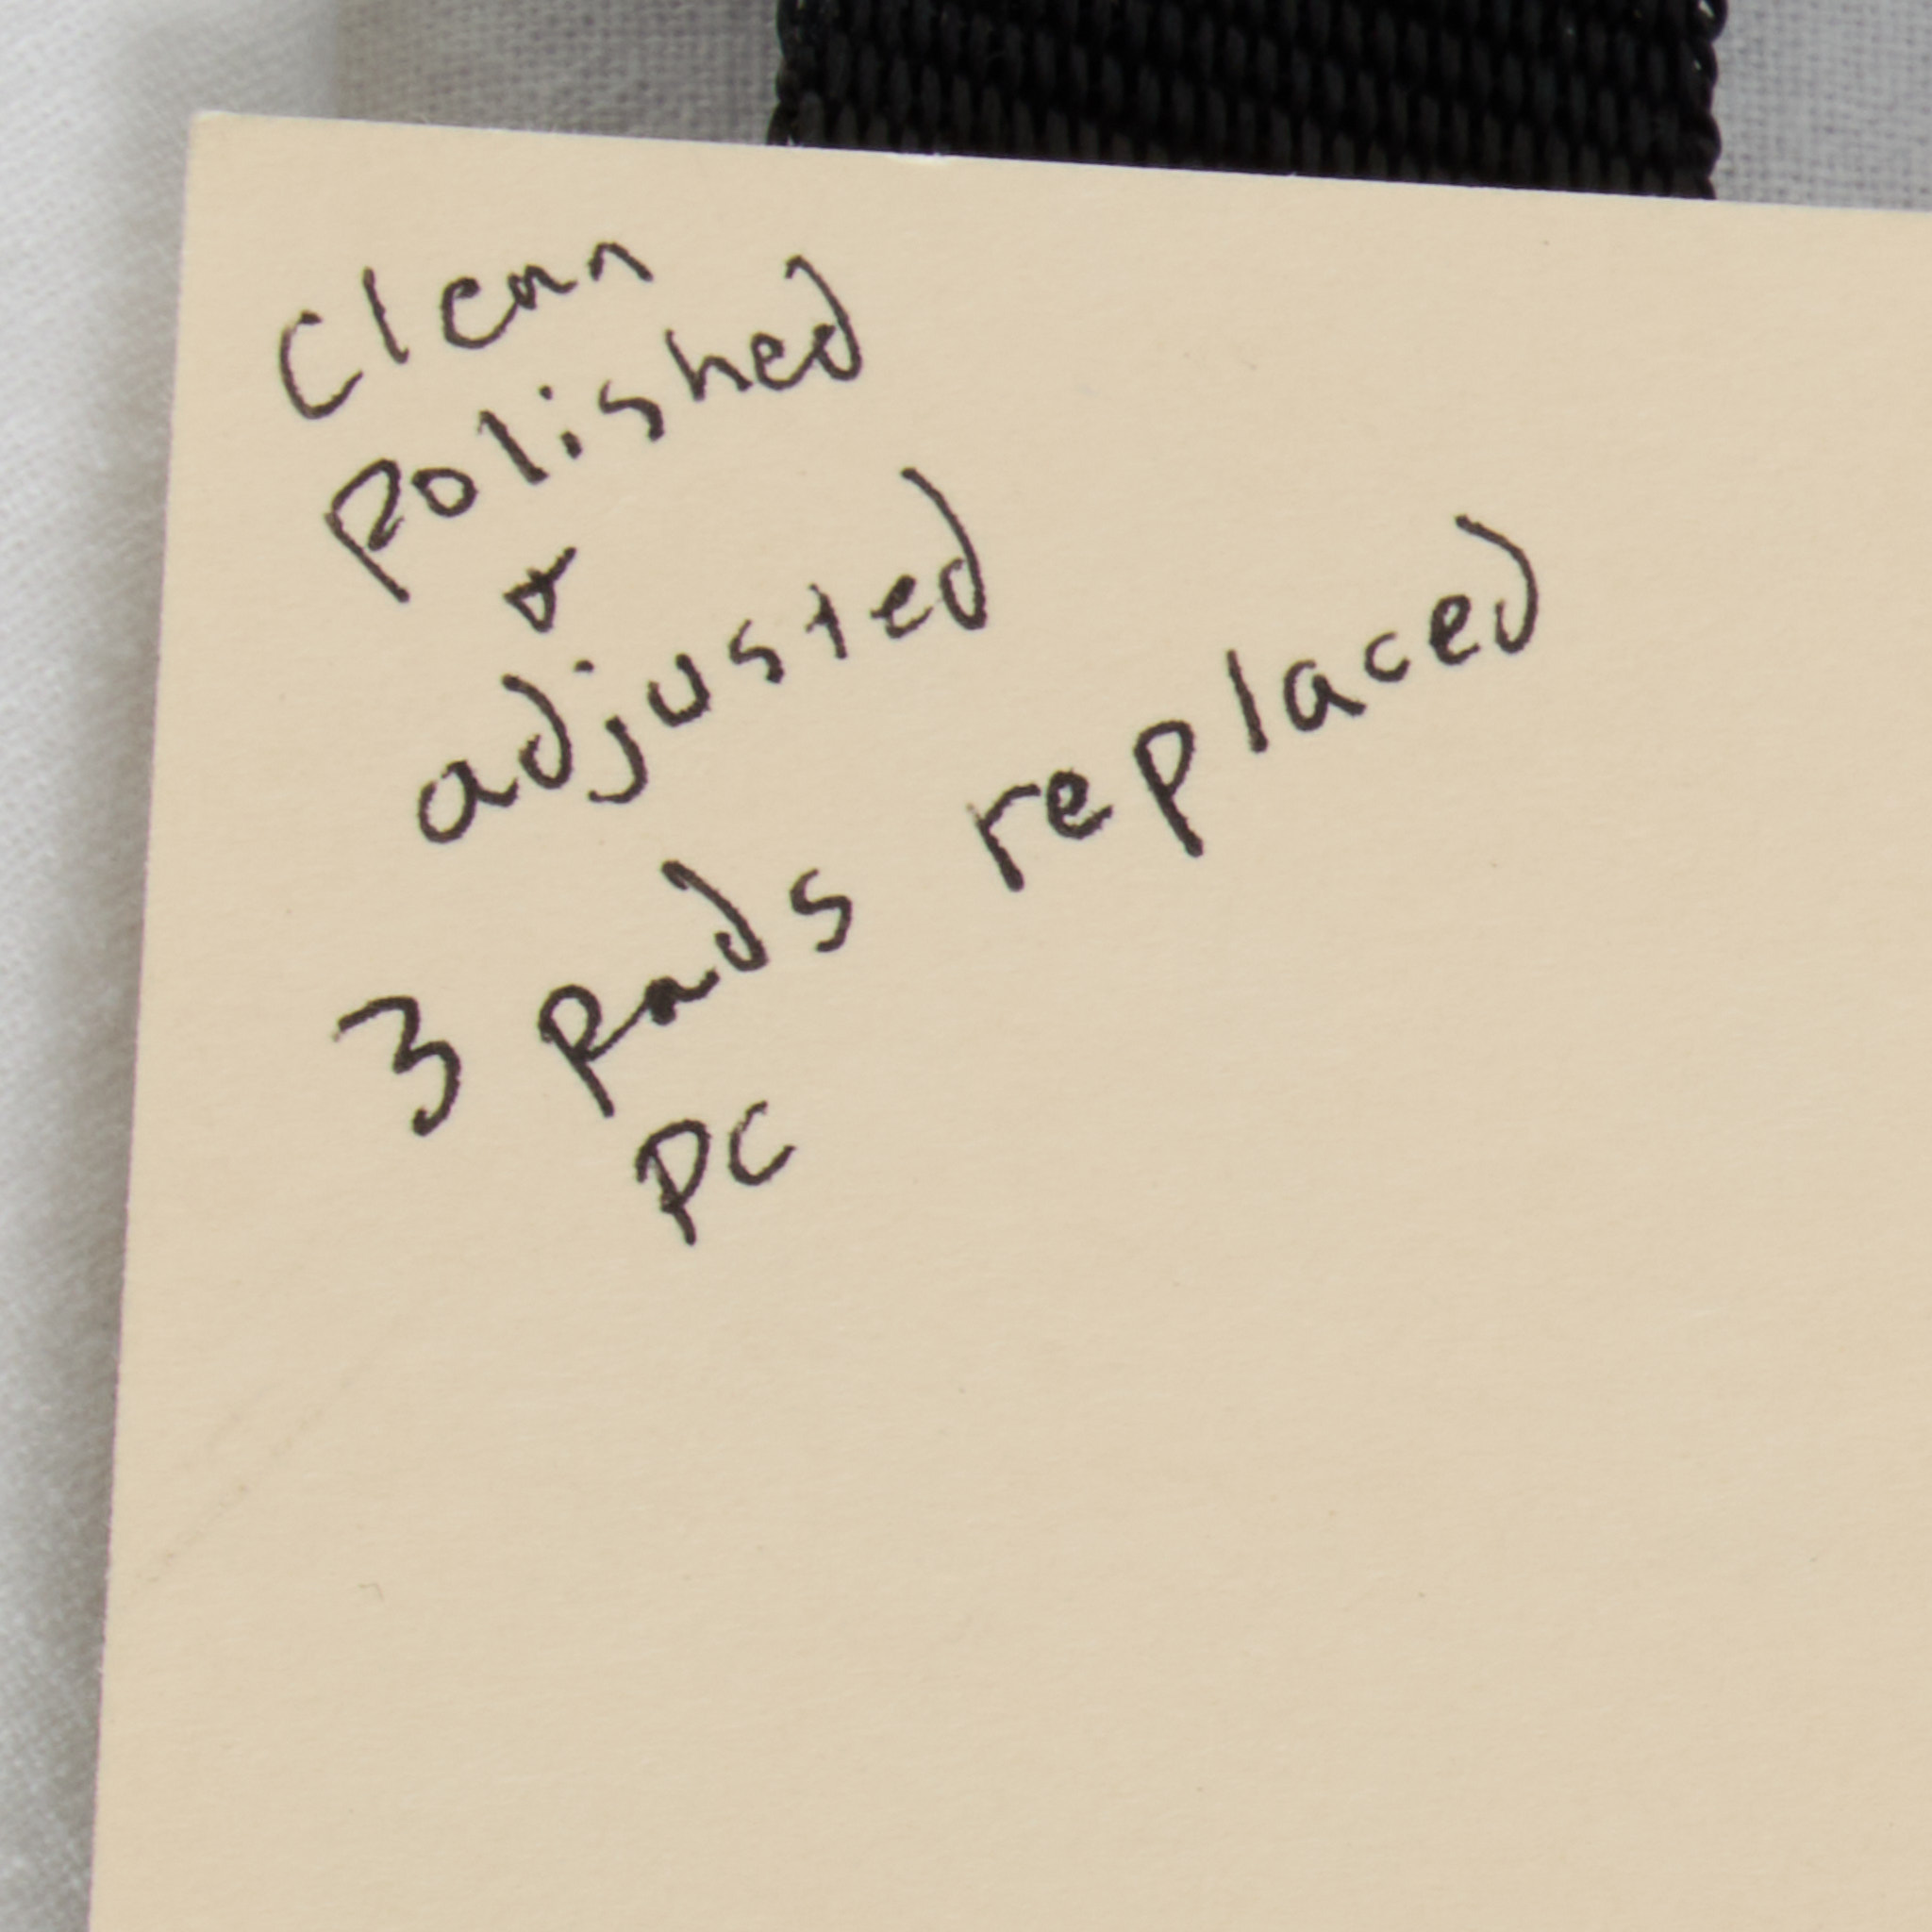 Clean
polished
&
adjusted
3 pads replaced
PC